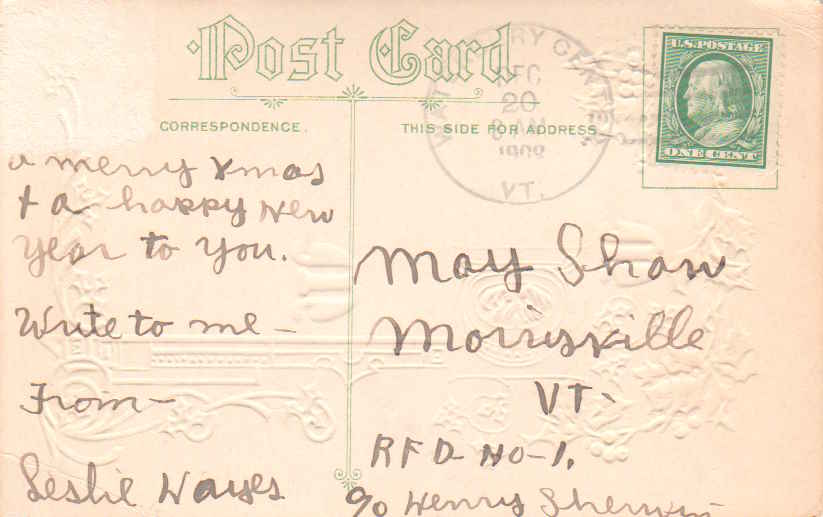 Post Card
CORRESPONDENCE.
THIS SIDE FOR ADDRESS
U.S. POSTAGE
ONE CENT
WATERBURY CENTER
DEC
20
8 AM
VT.
a merry Xmas
+ a happy New
Year to you.
Write to me –
From –
Leslie Hayes
May Shaw
Morrisville
VT.
RFD No-1.
c/o Henry Sherwin